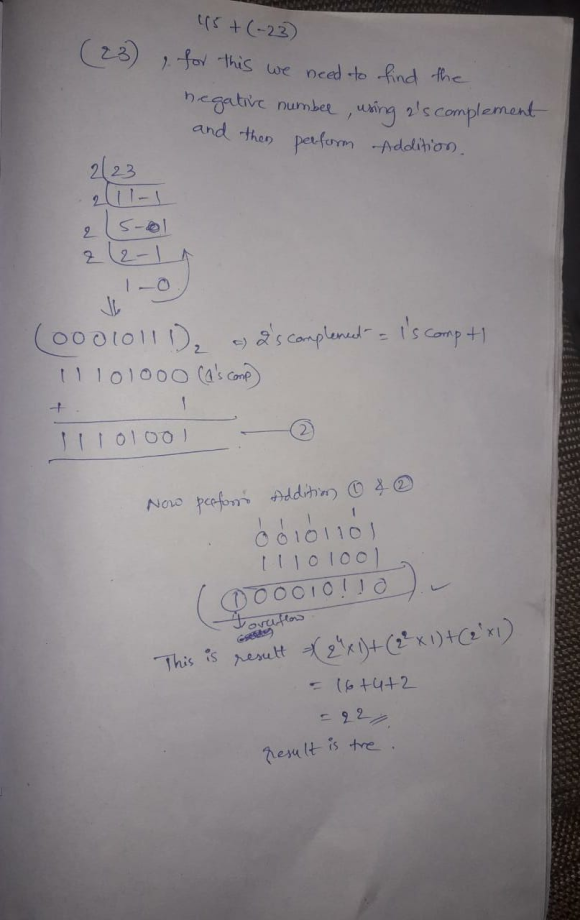 45 + (-23)
(23) , for this we need to find the
negative number, using 2's complement
and then perform Addition.
2 23
2 11-1
2 5-1
2 2-1
1-0
⇓
(00010111)₂ ⇒ 2's complement = 1's comp+1
11101000 (1's comp)
+ 1
11101001 — ②
Now perform Addition ① & ②
1 1 1 1
00101101
11101001
(① 00010110) ✓
↓ overflow
This is result ⇒ (2⁴×1)+(2²×1)+(2¹×1)
= 16+4+2
= 22
result is +ve.